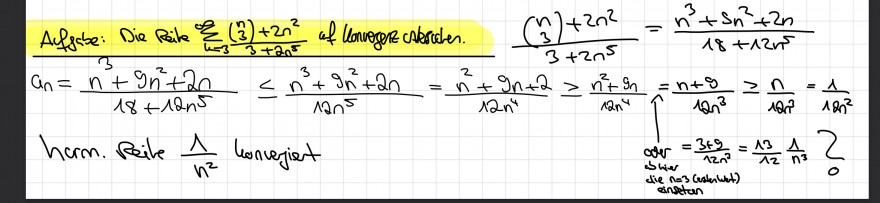 Aufgabe: Die Reihe ∑_{n=3}^{∞} \frac{\binom{n}{3}+2n^2}{3+2n^5} auf Konvergenz untersuchen. \frac{\binom{n}{3}+2n^2}{3+2n^5} = \frac{n^3+9n^2+2n}{18+12n^5}
a_n = \frac{n^3+9n^2+2n}{18+12n^5} ≤ \frac{n^3+9n^2+2n}{12n^5} = \frac{n^2+9n+2}{12n^4} ≥ \frac{n^2+9n}{12n^4} = \frac{n+9}{12n^3} ≥ \frac{n}{12n^3} = \frac{1}{12n^2}
harm. Reihe \frac{1}{n^2} konvergiert
oder = \frac{3+9}{12n^3} = \frac{13}{12} \frac{1}{n^3} ?
die n=3 (erster Wert)
einsetzen